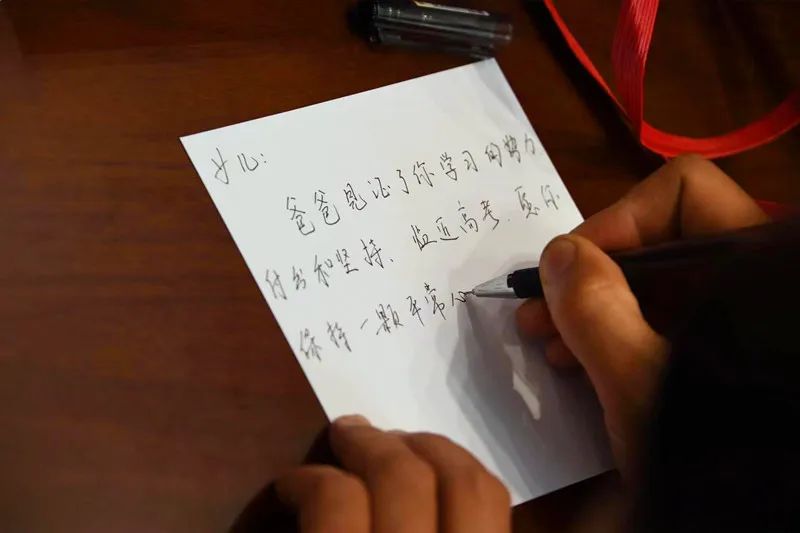 女儿:
爸爸见证了你学习的努力、
付出和坚持、临近高考、愿你
保持一颗平常心